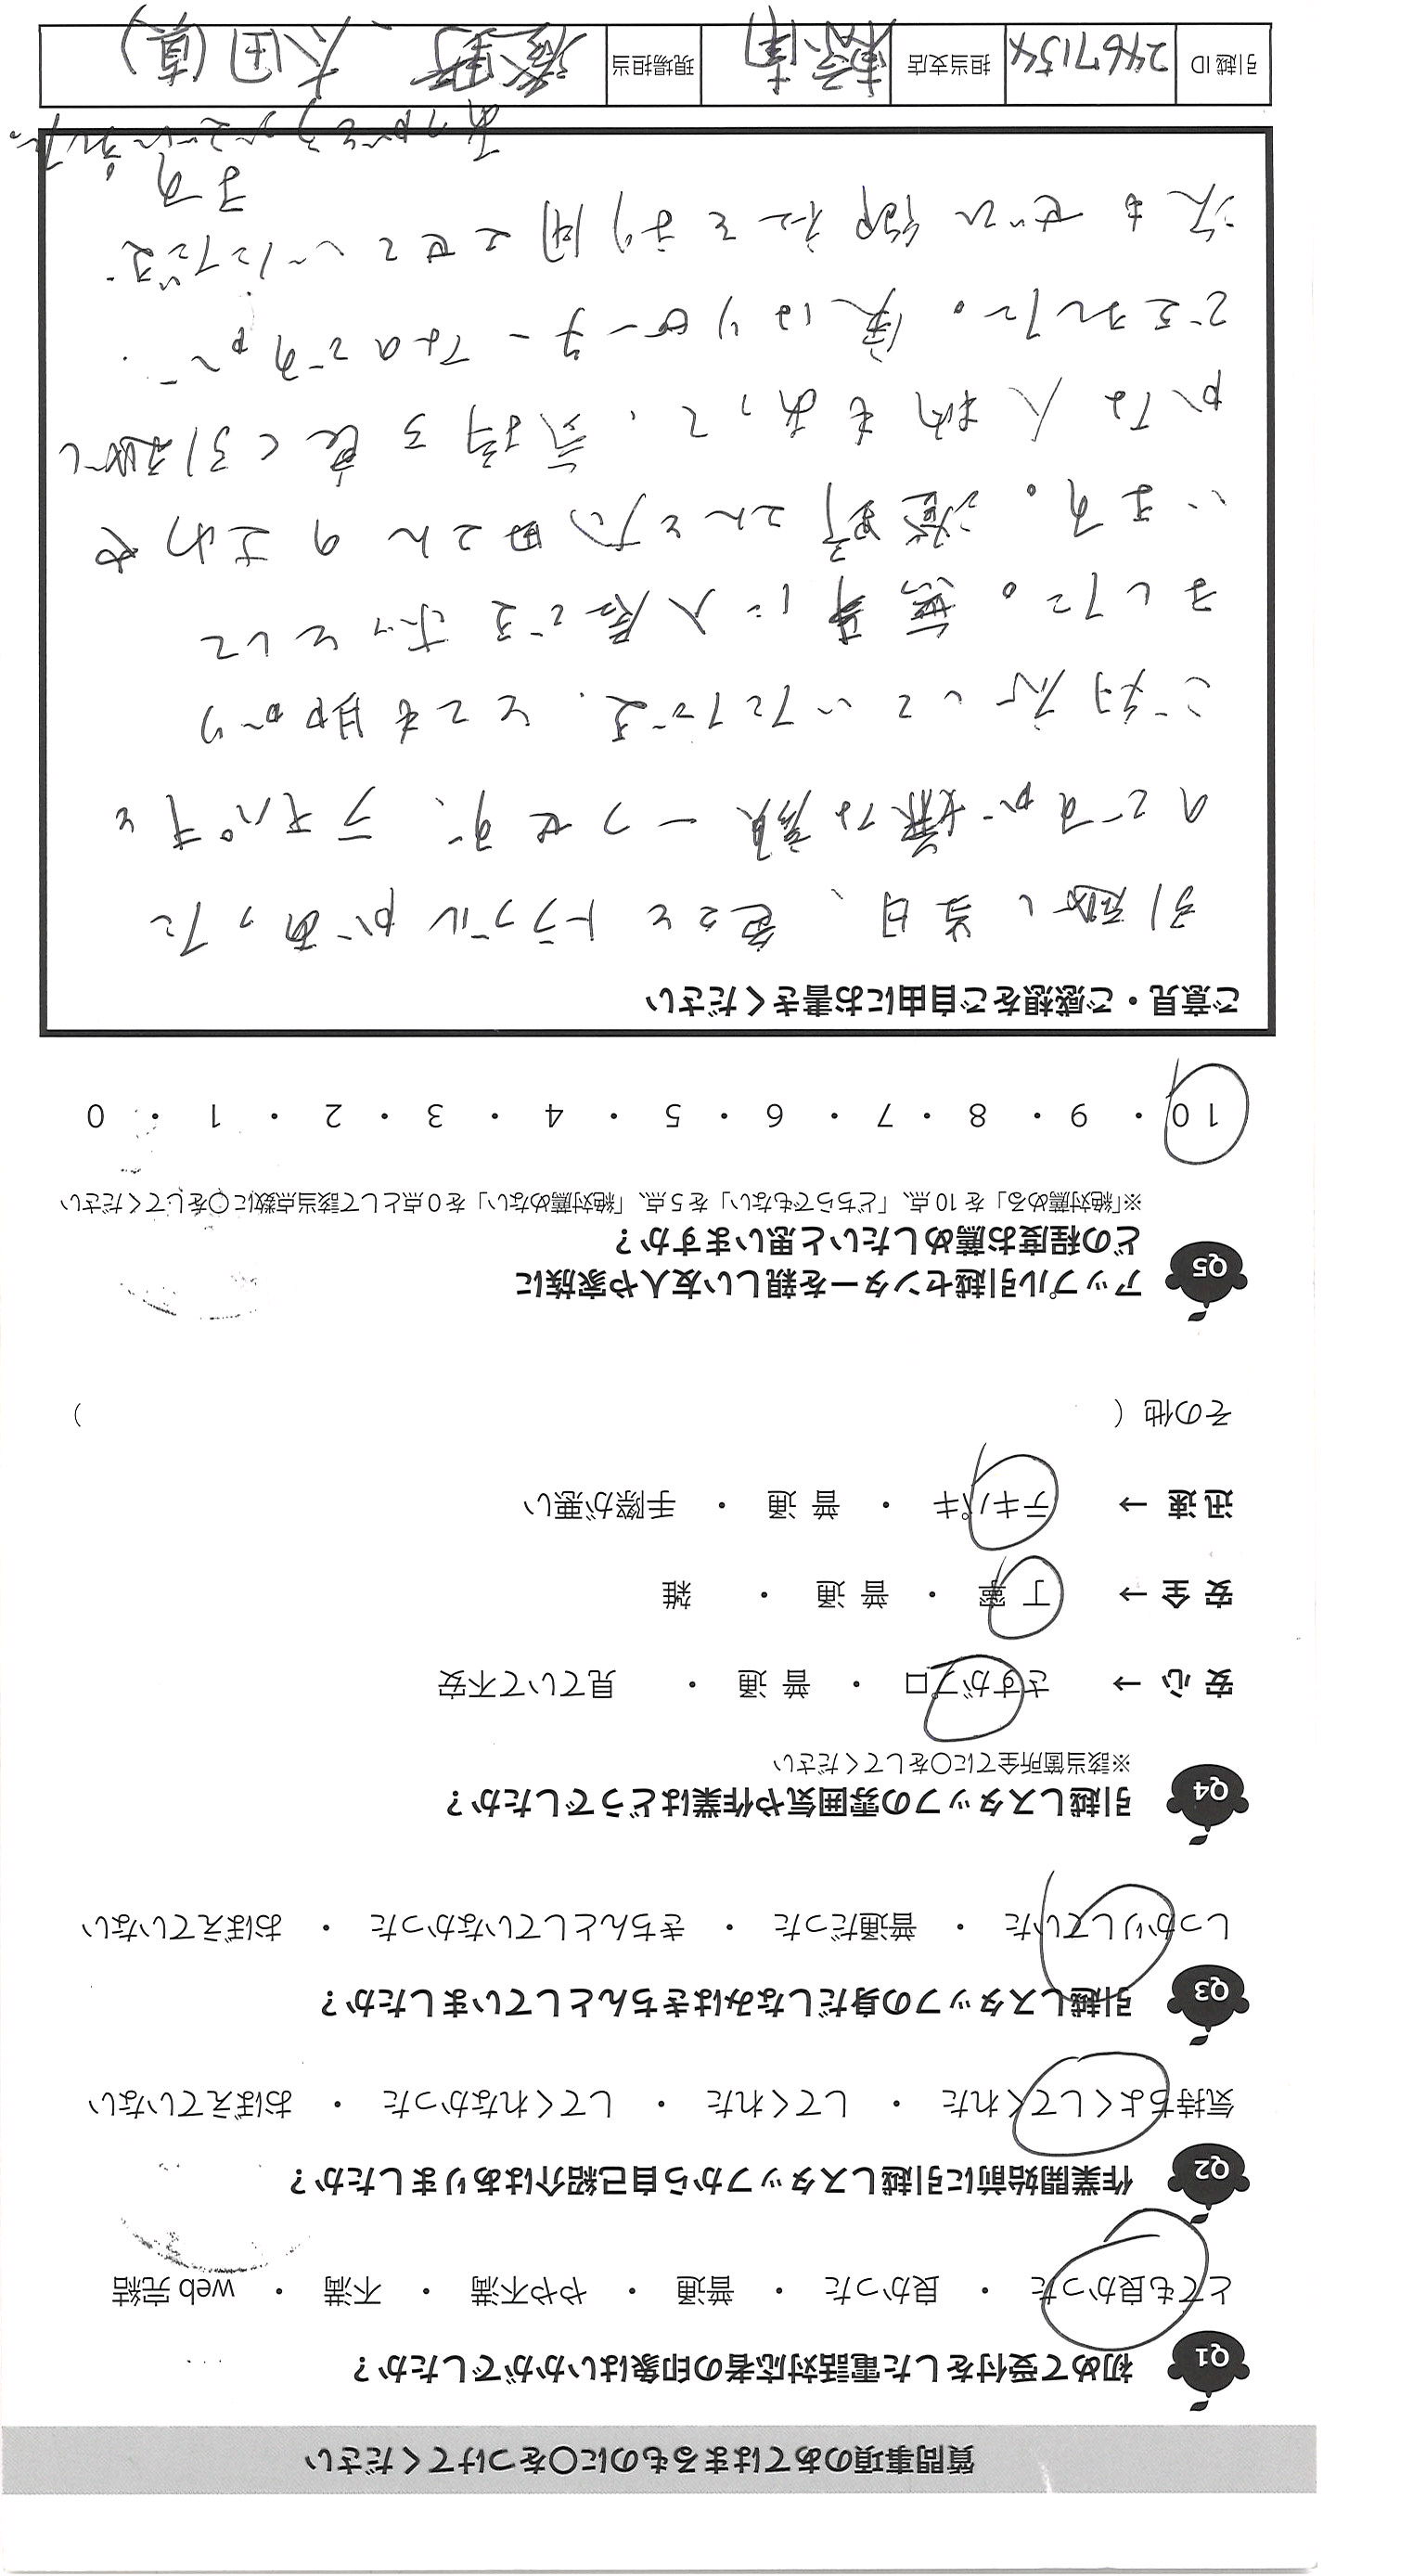 質問事項のあてはまるものに○をつけてください
Q1 初めて受付をした電話対応者の印象はいかがでしたか？
とても良かった ・ 良かった ・ 普通 ・ やや不満 ・ 不満 ・ web 完結
Q2 作業開始前に引越しスタッフから自己紹介はありましたか？
気持ちよくしてくれた ・ してくれた ・ してくれなかった ・ おぼえていない
Q3 引越しスタッフの身だしなみはきちんとしていましたか？
しっかりしていた ・ 普通だった ・ きちんとしていなかった ・ おぼえていない
Q4 引越しスタッフの雰囲気や作業はどうでしたか？
※該当箇所全てに○をしてください
安 心 → さすがプロ ・ 普 通 ・ 見ていて不安
安 全 → 丁 寧 ・ 普 通 ・ 雑
迅 速 → テキパキ ・ 普 通 ・ 手際が悪い
その他（ ）
Q5 アップル引越センターを親しい友人や家族に
どの程度お薦めしたいと思いますか？
※「絶対薦める」を 10 点、「どちらでもない」を 5 点、「絶対薦めない」を 0 点として該当点数に○をしてください
10 ・ 9 ・ 8 ・ 7 ・ 6 ・ 5 ・ 4 ・ 3 ・ 2 ・ 1 ・ 0
ご意見・ご感想をご自由にお書きください
引越し当日、色々とトラブルがあった
のですが嫌な顔一つせず、テキパキと
ご対応していただき、とても助かり
ました。無事に入居できホッとして
います。澄野さんと太田さんのさわや
かな人柄もあって、気持ち良く引越し
できました。実はリピーターなのですが、
次もぜひ御社をお利用させていただき
ます。
ありがとうございました。
引越 ID 2467154 担当支店 湘南 現場担当 澄野、太田(真)